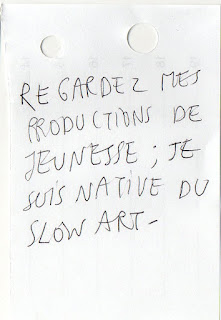 REGARDEZ MES
PRODUCTIONS DE
JEUNESSE ; JE
SUIS NATIVE DU
SLOW ART-